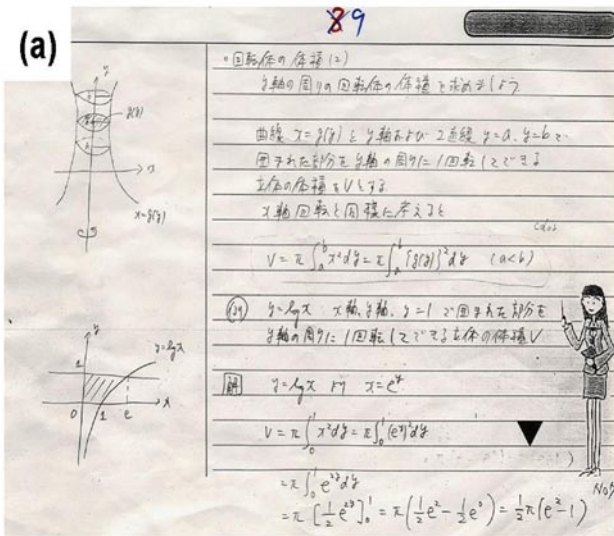 (a)
89
・回転体の体積(2)
y軸の周りの回転体の体積を求めましょう
曲線 x=g(y)とy軸および2直線 y=a, y=bで
囲まれた部分をy軸の周りに1回転してできる
立体の体積をVとする
x軸回転と同様に考えると
V=π∫_a^b x²dy=π∫_a^b {g(y)}²dy (a<b)
(例) y=log x x軸、y軸、y=1で囲まれた部分を
y軸の周りに1回転してできる立体の体積V
解 y=log x より x=e^y
V=π∫_0^1 x²dy=π∫_0^1 (e^y)²dy
=π∫_0^1 e^{2y}dy
=π[1/2 e^{2y}]_0^1=π(1/2 e²-1/2 e⁰)=1/2 π(e²-1)
y
b
g(y)
a
x
x=g(y)
y
y=log x
1
0
1
e
x